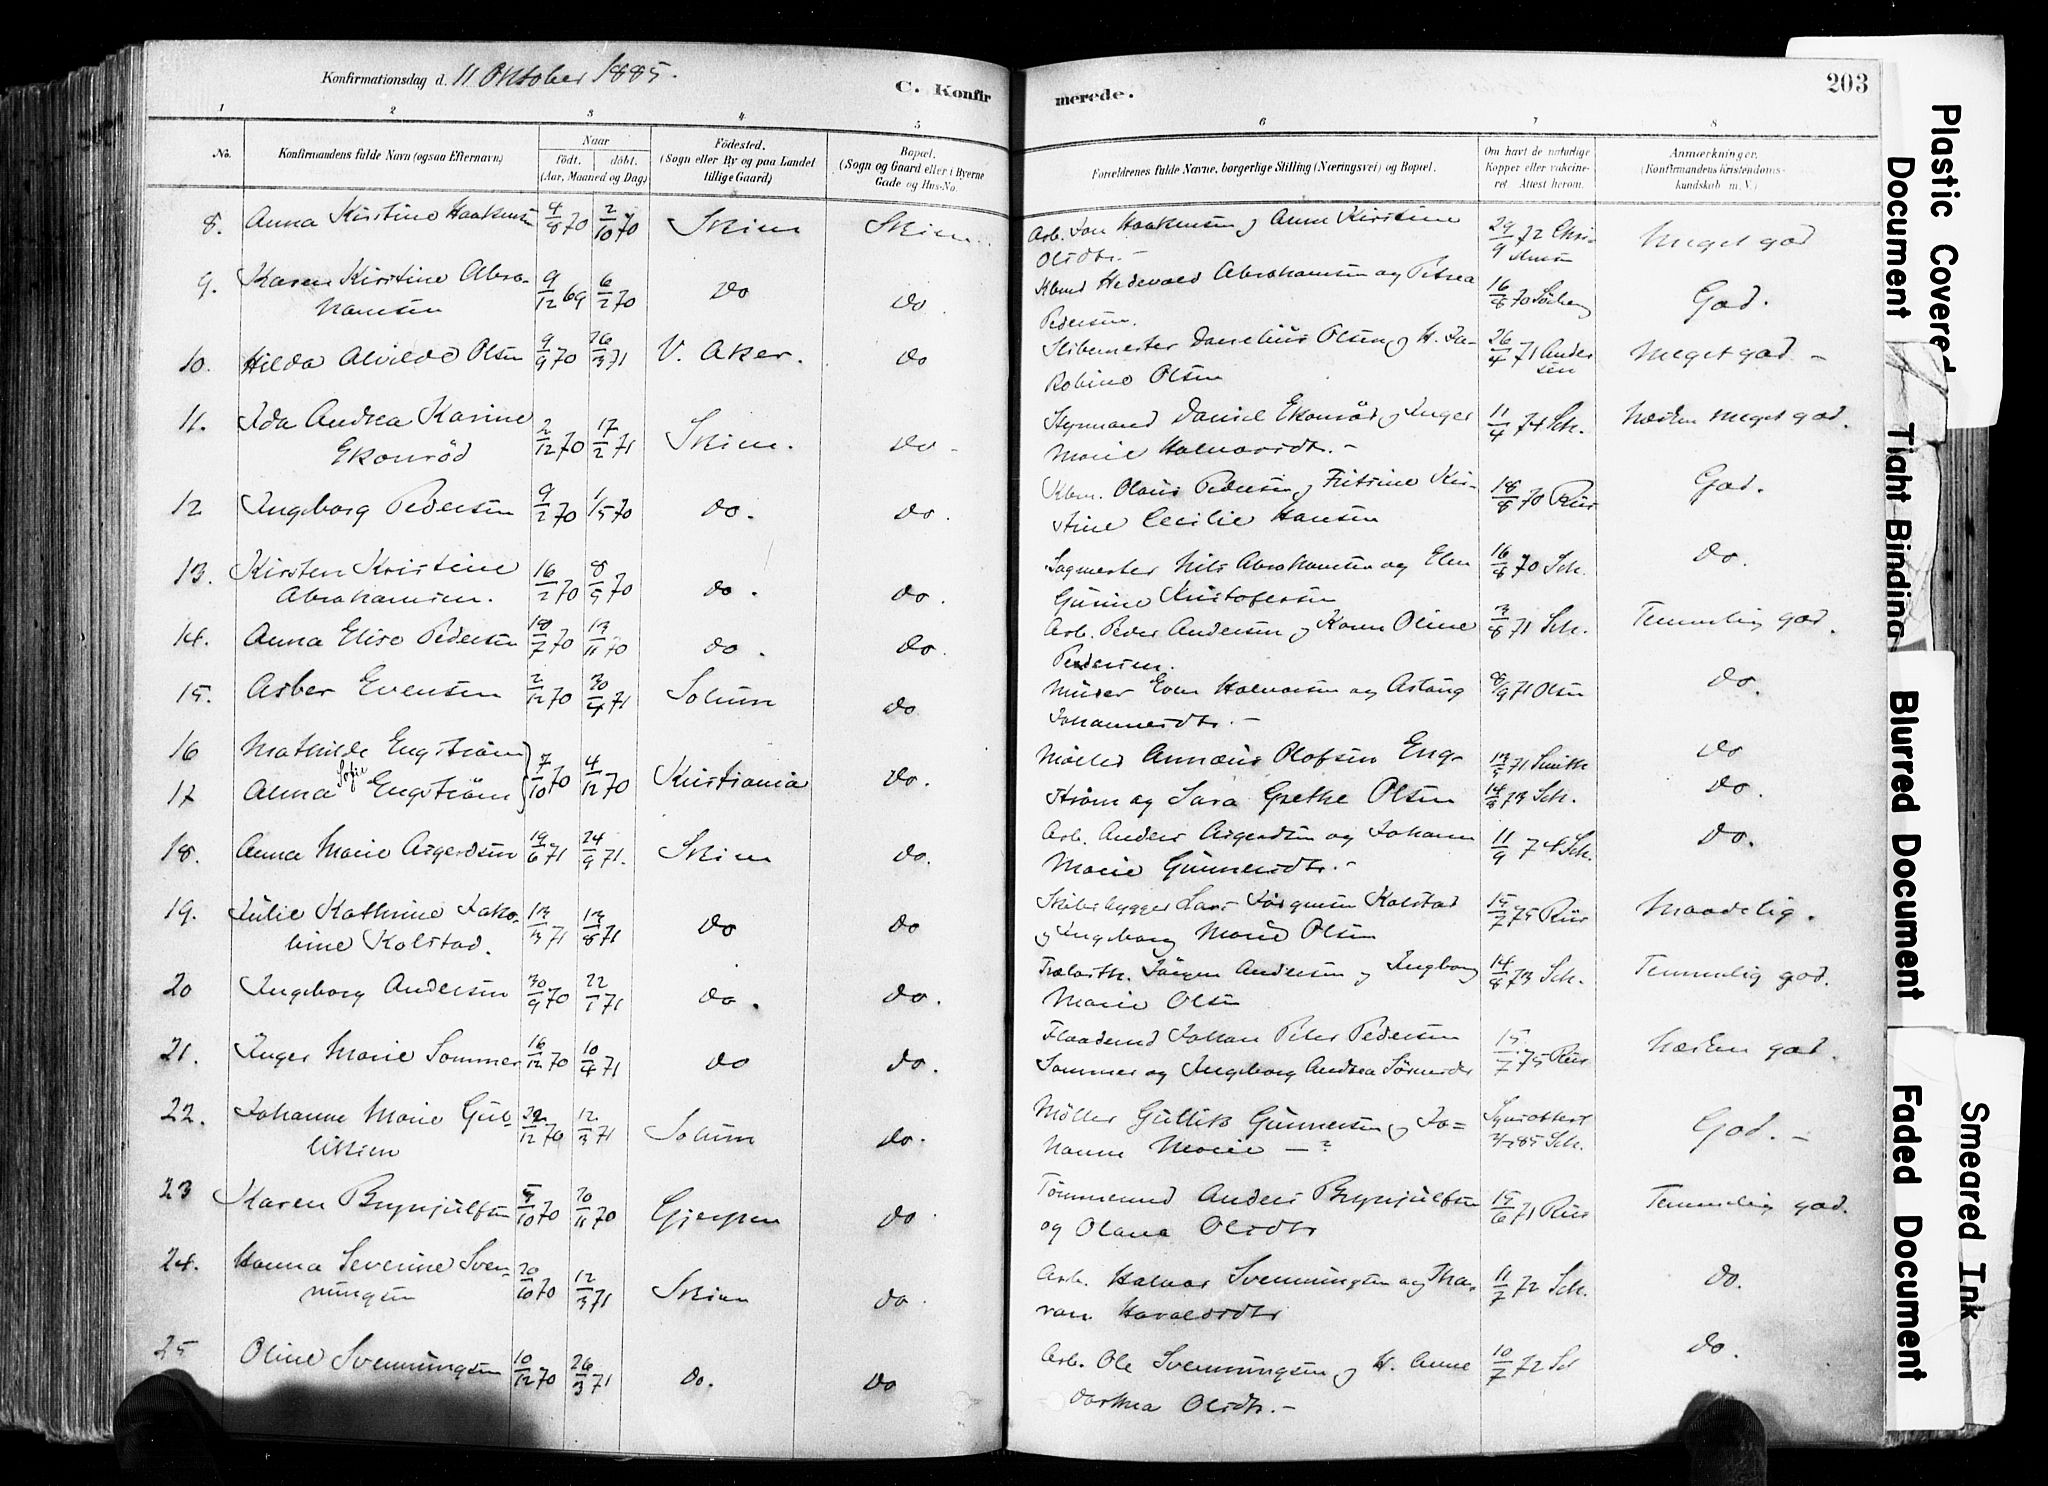 Konfirmationsdag d. 11 Oktober 1885.
C. Konfir
merede.
203
1 2 3 4 5 6 7 8
No.
Konfirmandens fulde Navn (ogsaa Efternavn)
Naar
födt. döbt.
(Aar, Maaned og Dag)
Födested.
(Sogn eller By og paa Landet
tillige Gaard)
Bopæl.
(Sogn og Gaard eller i Byerne
Gade og Hus-No.
Forældrenes fulde Navne, borgerlige Stilling (Næringsvei) og Bopæl.
Om havt de naturlige
Kopper eller vakcine-
ret. Attest herom.
Anmærkninger.
(Konfirmandens Kristendoms-
kundskab m. V.)
8. Anna Kirstine Haakensen 4/8 70 2/10 70 Skien Skien Arb. Jon Haakensen og Anne Kirstine 29/9 72 Meget god
Olsdtr. -
9. Karen Kirstine Abra- 9/12 69 6/2 70 Do Do. Abrahamsen og Petrea 16/8 70 God.
hamsen
Pedersen.
10. Hilda Alvilde Olsen 9/9 70 26/3 71 V. Aker. Do Olsen og H. Ja- 26/4 71 Ander Meget god -
sen
kobine Olsen
11. Ida Andrea Karine 2/12 70 17/2 71 Skien. Do Styrmand Daniel Ekonröd og Inger 11/4 74 Sch. Næsten meget god.
Ekonröd
Marie Halvorsdtr. -
12 Ingeborg Pedersen 9/2 70 1/5 70 Do. Do. Olaus Pedersen og Fritrine Kir- 18/8 70 Riis God.
stine Cecilie Hansen
13. Kirsten Kristine 16/2 70 8/5 70 Do. Do. Sagmester Nils Abrahamsen og Elen 16/8 70 Sch. Do.
Abrahamsen.
Gurine Kristofersen
14. Anna Elise Pedersen 18/7 70 13/11 70 Do. Do. Arb. Peder Andersen og Karen Oline 3/8 71 Sch. Temmelig god.
Pedersen.
15. Asber Evensen 2/12 70 30/4 71 Solum Do Even Halvorsen og Aslaug 8/9 71 Olsen Do.
Johannesdtr. -
16 Mathilde Engström 7/10 70 4/12 70 Kristiania Do. Möller Annæus Olofsen Eng- 71 Smith Do
17 Anna Sofie Engström ström og Sara Grethe Olsen 73 Sch. Do.
18. Anna Marie Asgerdsen 19/6 71 24/9 71. Skien Do. Arb. Anders Asgerdsen og Johanne 11/9 74 Sch. Do.
Marie Gunnersdtr. -
19. Julie Kathrine Jako- 13/3 71 13/8 71 Do Do Skibsbygger Lars Jörgensen Kolstad 15/7 75 Riis Maadelig.
bine Kolstad.
og Ingeborg Marie Olsen
20 Ingeborg Andersen 30/9 70 22/1 71 Do. Do. Jörgen Andersen og Ingeborg 14/8 73 Sch. Temmelig god.
Marie Olsen
21. Inger Marie Sommer 16/12 70 10/4 71 Do Do. Johan Peter Pedersen 15/7 75 Riis Næsten god.
Sommer og Ingeborg Andrea
22. Johanne Marie Gul- 12/70 12/3 71 Solum Do. Möller Gullik Gunnersen og Jo- God. -
liksen
hanne Marie - ? 85 Sch.
23 Karen Brynjulfsen 5/10 70 20/11 70 Gjerpen Do Tömmermd Anders Brynjulfsen 15/6 71 Riis Temmelig god.
og Olava Olsdtr
24. Hanna Severine Sven- 20/10 70 12/3 71 Skien Do Arb. Halvor Svenningsen og Tha- 11/7 72 Sch. Do.
ningsen
ran Haraldsdtr
25 Oline Svenningsen 10/12 70 26/3 71 Do. Do Arb. Ole Svenningsen og H. Anne 10/7 72 Do.
Dorthea Olsdtr. -
Plastic Covered Document
Tight Binding
Blurred Document
Faded Document
Smeared Ink